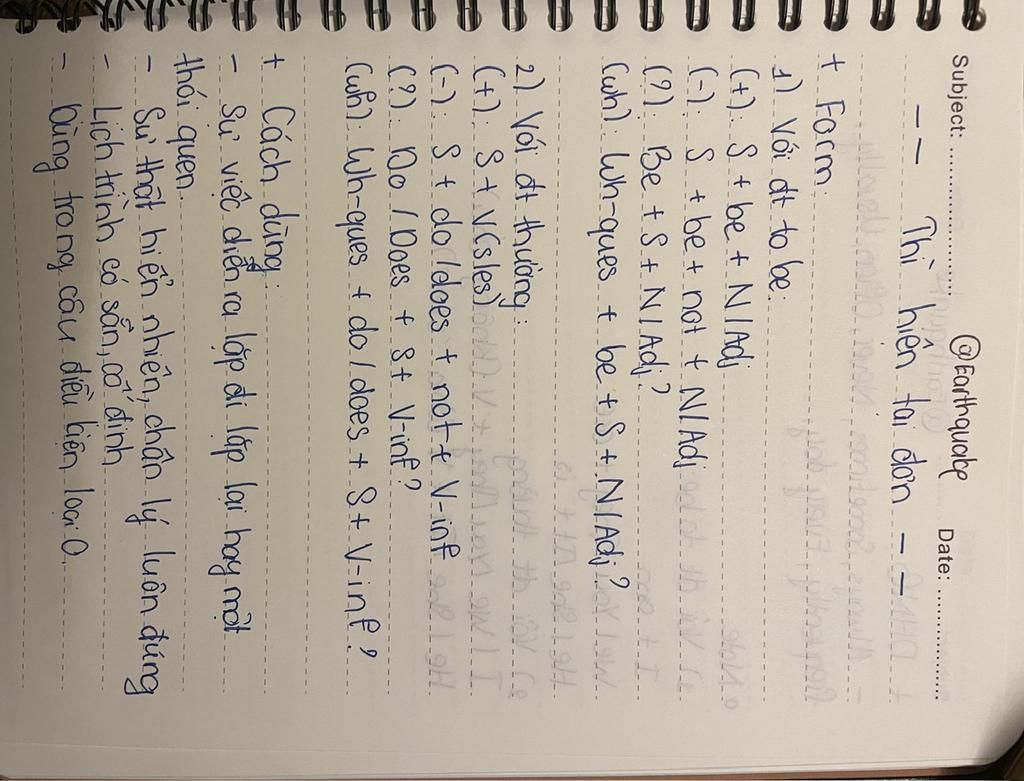 @Earthquake
Subject: .................................... Date: ........................
-- Thì hiện tại đơn --
+ Form:
1) Với đt to be:
(+): S + be + N/Adj
(-): S + be + not + N/Adj
(?): Be + S + N/Adj?
(Wh): Wh-ques + be + S + N/Adj?
2) Với đt thường:
(+): S + V(s/es)
(-): S + do/does + not + V-inf
(?): Do/Does + S + V-inf?
(Wh): Wh-ques + do/does + S + V-inf?
+ Cách dùng:
- Sự việc diễn ra lặp đi lặp lại hay một
thói quen.
- Sự thật hiển nhiên, chân lý luôn đúng
- Lịch trình có sẵn, cố định
- Dùng trong câu điều kiện loại 0.